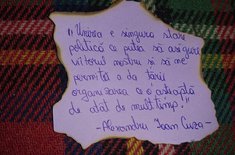 "Unirea e singura stare
politică ce poate să asigure
viitorul nostru și să ne
permită a da țării
organizarea, ce o așteaptă
de atât de mult timp!"
-Alexandru Ioan Cuza-